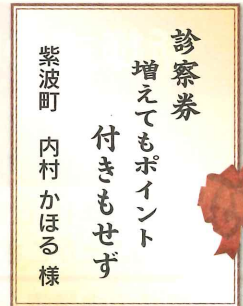 診察券
増えてもポイント
付きもせず
紫波町　内村 かほる 様